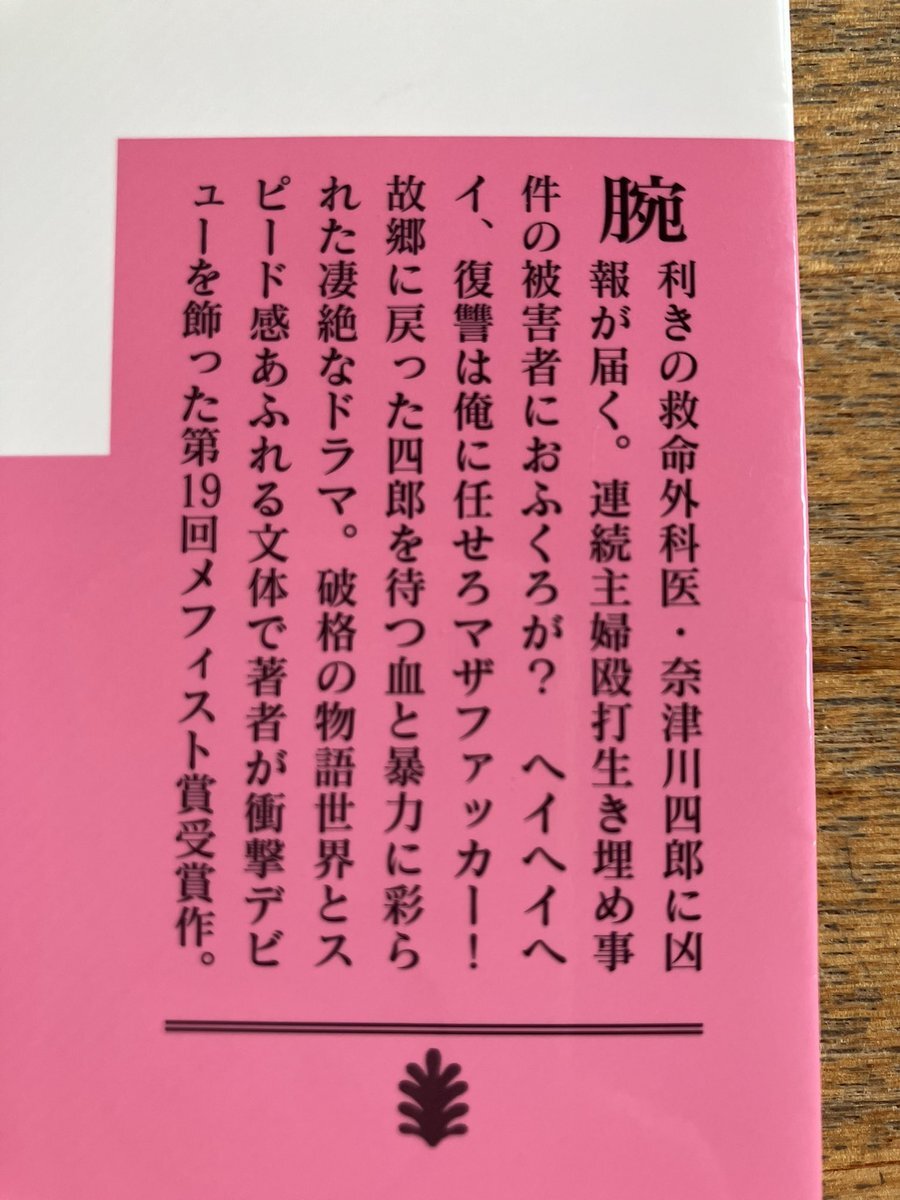 腕利きの救命外科医・奈津川四郎に凶
報が届く。連続主婦殴打生き埋め事
件の被害者におふくろが？　ヘイヘイヘ
イ、復讐は俺に任せろマザファッカー！
故郷に戻った四郎を待つ血と暴力に彩ら
れた凄絶なドラマ。破格の物語世界とス
ピード感あふれる文体で著者が衝撃デビ
ューを飾った第19回メフィスト賞受賞作。